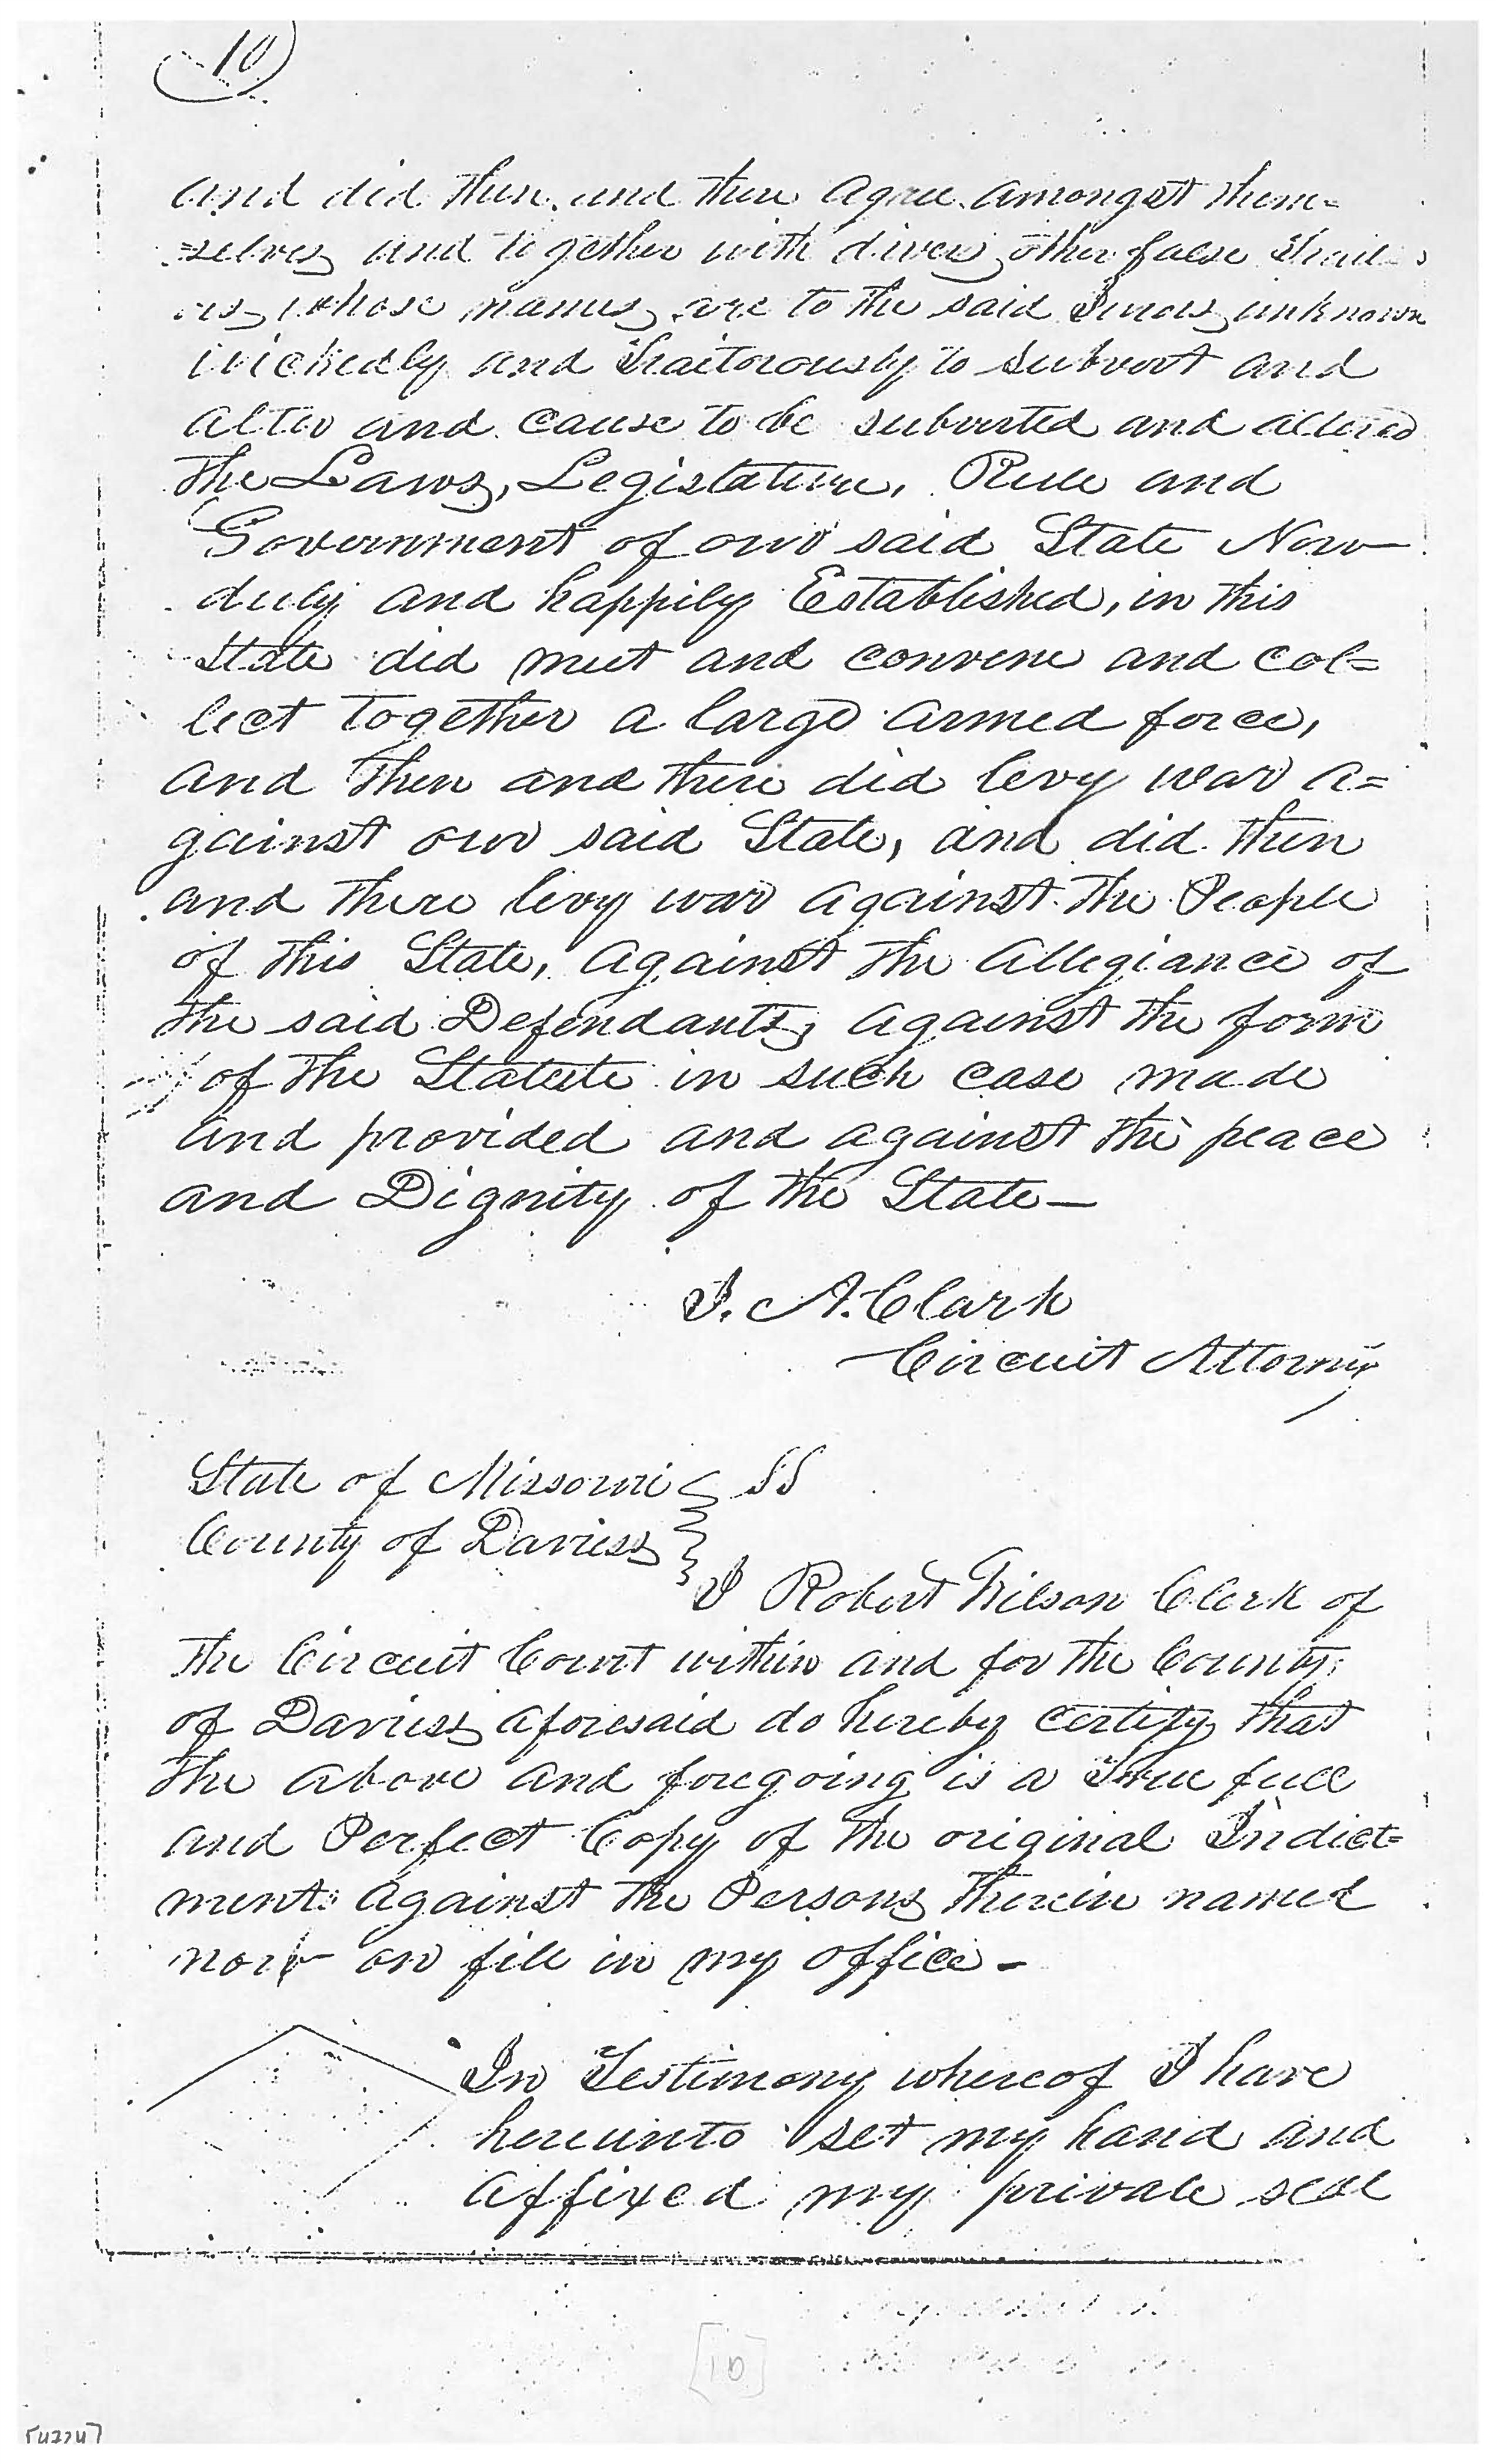 10
and did then and there agree amongst them=
=selves and together with divers other false Trait
ors whose names are to the said Jurors unknown
wickedly and Traitorously to subvert and
alter and cause to be subverted and altered
the Laws, Legislature, Rule and
Government of our said State Now
duly and happily Established, in this
State did meet and convene and col=
lect together a large armed force,
and then and there did levy war a=
gainst our said State, and did then
and there levy war against the People
of this State, against the allegiance of
the said Defendants, against the form
of the Statute in such case made
and provided and against the peace
and Dignity of the State—
J. A. Clark
Circuit Attorney
State of Missouri } SS
County of Daviess }
I Robert Wilson Clerk of
the Circuit Court within and for the County
of Daviess aforesaid do hereby certify that
the above and foregoing is a True full
and Perfect Copy of the original Indict=
ment against the Persons therein named
now on file in my office—
In Testimony whereof I have
hereunto set my hand and
affixed my private seal
[10]